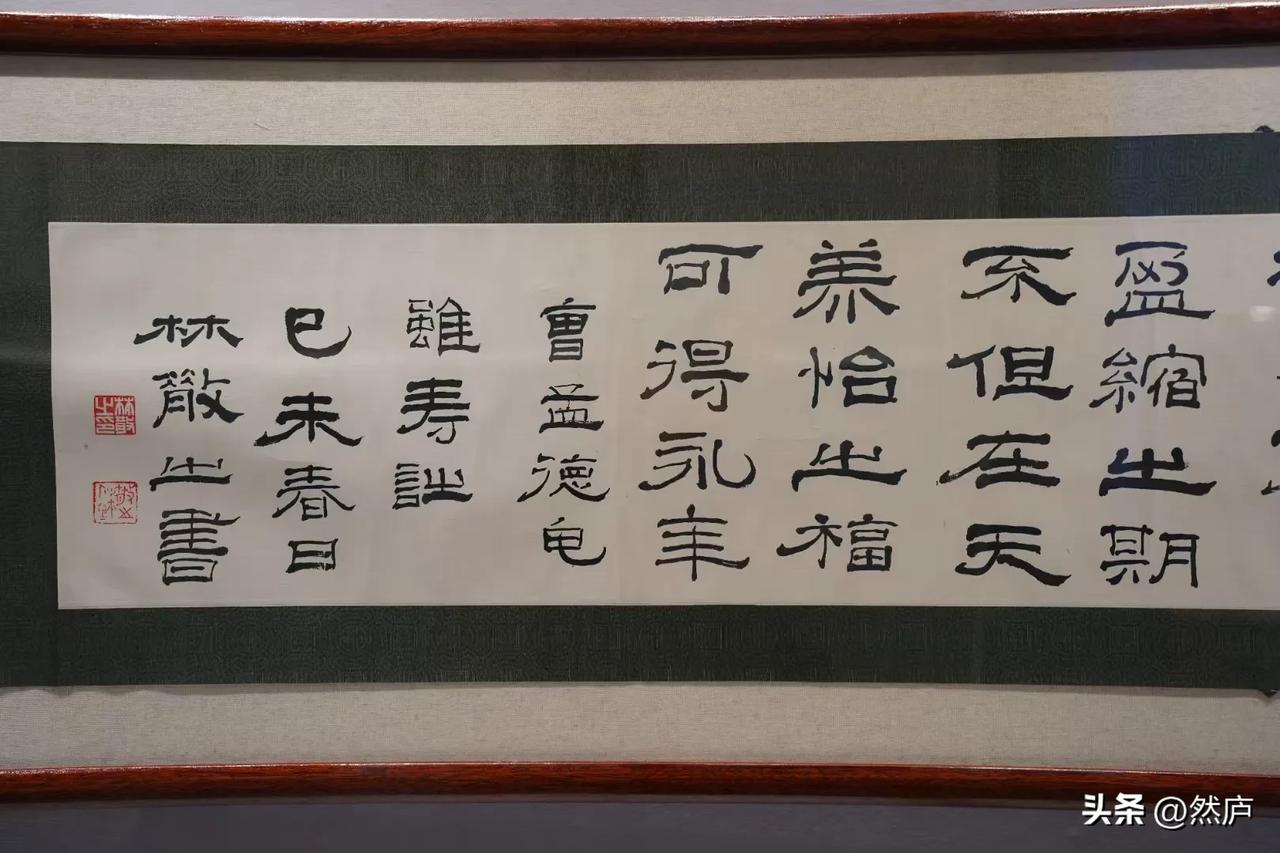 盈縮之期
不但在天
養怡之福
可得永年
曹孟德龟
雖寿诗
己未春日
林散之書
林散之印
头条 @然庐